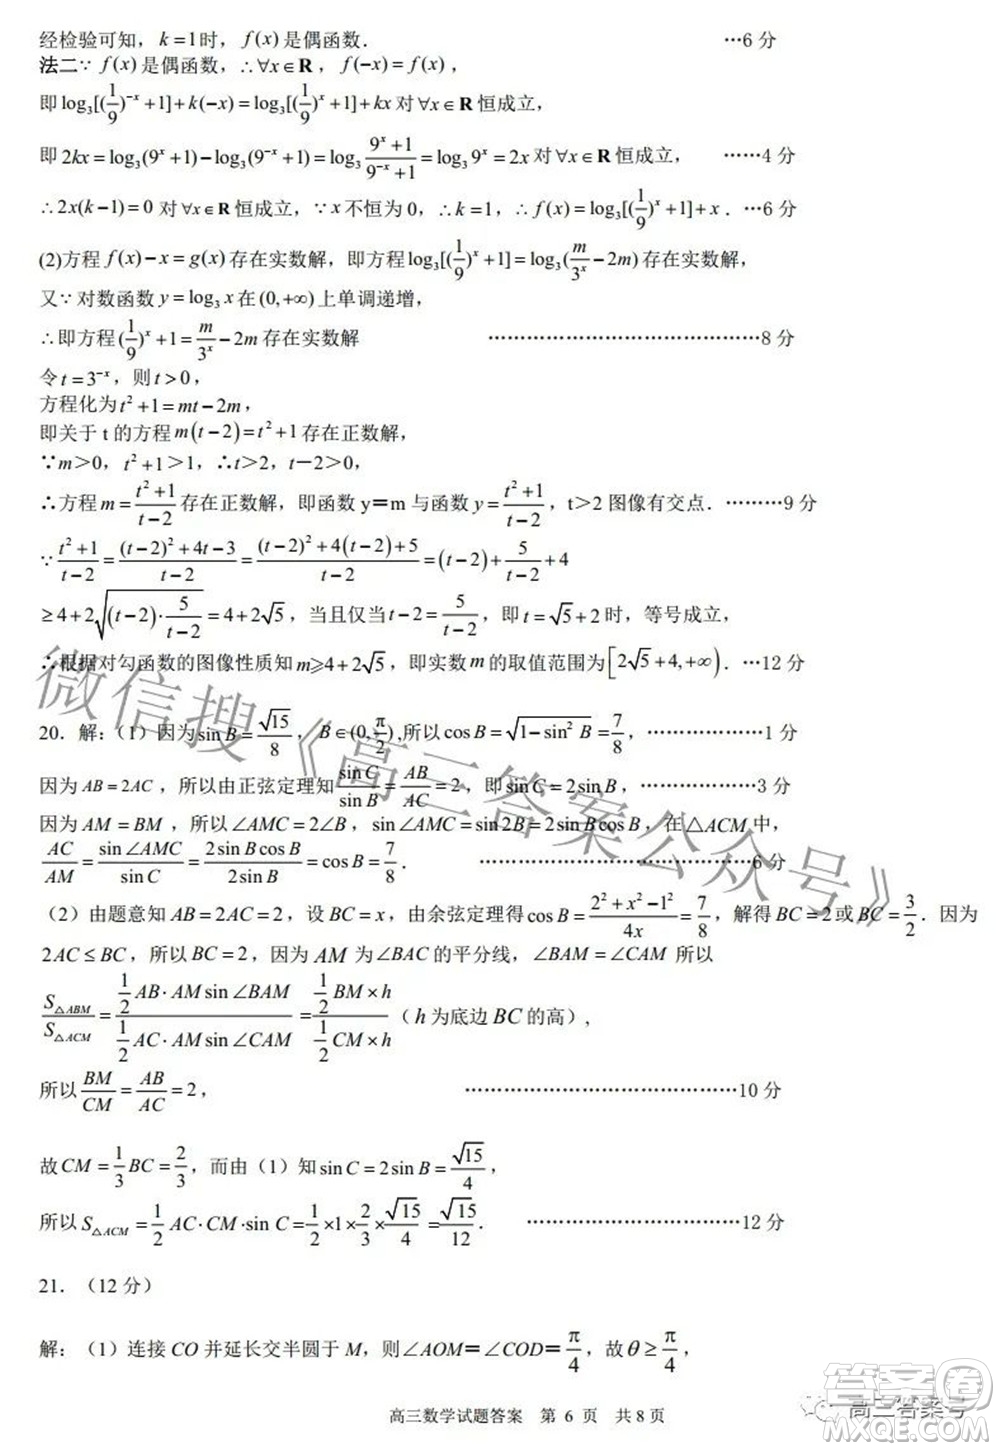 经检验可知，k=1时，f(x)是偶函数． …6 分
法二∵ f(x)是偶函数，∴∀x∈R，f(−x)=f(x)，
即log₃[(1/9)^{−x}+1]+k(−x)=log₃[(1/9)^x+1]+kx 对∀x∈R 恒成立，
即2kx=log₃(9^x+1)−log₃(9^{−x}+1)=log₃ (9^x+1)/(9^{−x}+1)=log₃9^x=2x 对∀x∈R 恒成立， ……4 分
∴2x(k−1)=0 对∀x∈R 恒成立，∵x不恒为 0，∴k=1，∴f(x)=log₃[(1/9)^x+1]+x．…6分
(2)方程f(x)−x=g(x)存在实数解，即方程log₃[(1/9)^x+1]=log₃(m/3^x−2m)存在实数解，
又∵对数函数y=log₃x在(0,+∞)上单调递增，
∴即方程(1/9)^x+1=m/3^x−2m存在实数解 ……………………………………8 分
令t=3^{−x}，则t>0，
方程化为t²+1=mt−2m，
即关于 t 的方程m(t−2)=t²+1存在正数解，
∵m＞0，t²+1＞1，∴t＞2，t－2＞0，
∴方程m=(t²+1)/(t−2)存在正数解，即函数 y＝m 与函数y=(t²+1)/(t−2)，t＞2 图像有交点．………9 分
∵(t²+1)/(t−2)=((t−2)²+4t−3)/(t−2)=((t−2)²+4(t−2)+5)/(t−2)=(t−2)+5/(t−2)+4
≥4+2√((t−2)·5/(t−2))=4+2√5，当且仅当t−2=5/(t−2)，即t=√5+2时，等号成立，
∴根据对勾函数的图像性质知m≥4+2√5，即实数m的取值范围为[2√5+4,+∞)．…12 分
20．解：（1）因为sin B=√15/8，B∈(0,π/2),所以cos B=√(1−sin² B)=7/8，………………1 分
因为AB=2AC，所以由正弦定理知sin C/sin B=AB/AC=2，即sin C=2sin B，………………3 分
因为AM=BM，所以∠AMC=2∠B，sin∠AMC=sin 2B=2sin B cos B，在△ACM中，
AC/AM=sin∠AMC/sin C=2sin B cos B/2sin B=cos B=7/8． ………………………………………6 分
（2）由题意知AB=2AC=2，设BC=x，由余弦定理得cos B=(2²+x²−1²)/4x=7/8，解得BC=2或BC=3/2．因为
2AC≤BC，所以BC=2，因为AM为∠BAC的平分线，∠BAM=∠CAM 所以
S△ABM/S△ACM=(1/2 AB·AM sin∠BAM)/(1/2 AC·AM sin∠CAM)=(1/2 BM×h)/(1/2 CM×h)（h为底边BC的高），
所以BM/CM=AB/AC=2， ……………………………………10 分
故CM=1/3 BC=2/3，而由（1）知sin C=2sin B=√15/4，
所以S△ACM=1/2 AC·CM·sin C=1/2×1×2/3×√15/4=√15/12． ……………………………12 分
21．（12 分）
解：（1）连接 CO 并延长交半圆于 M，则∠AOM＝∠COD＝π/4，故θ≥π/4，
高三数学试题答案 第 6 页 共 8 页
微信搜《高三答案公众号》
高三答案号